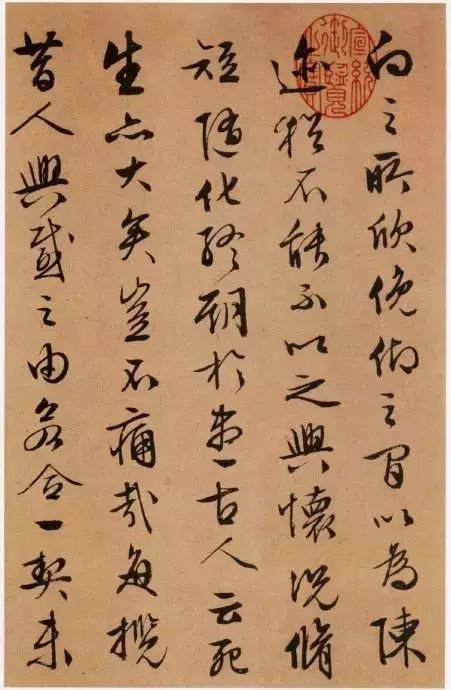 向之所欣俛仰之間以為陳
迹猶不能不以之興懷況脩
短隨化終期於盡古人云死
生亦大矣豈不痛哉每攬
昔人興感之由若合一契未
宣統御覽之寶